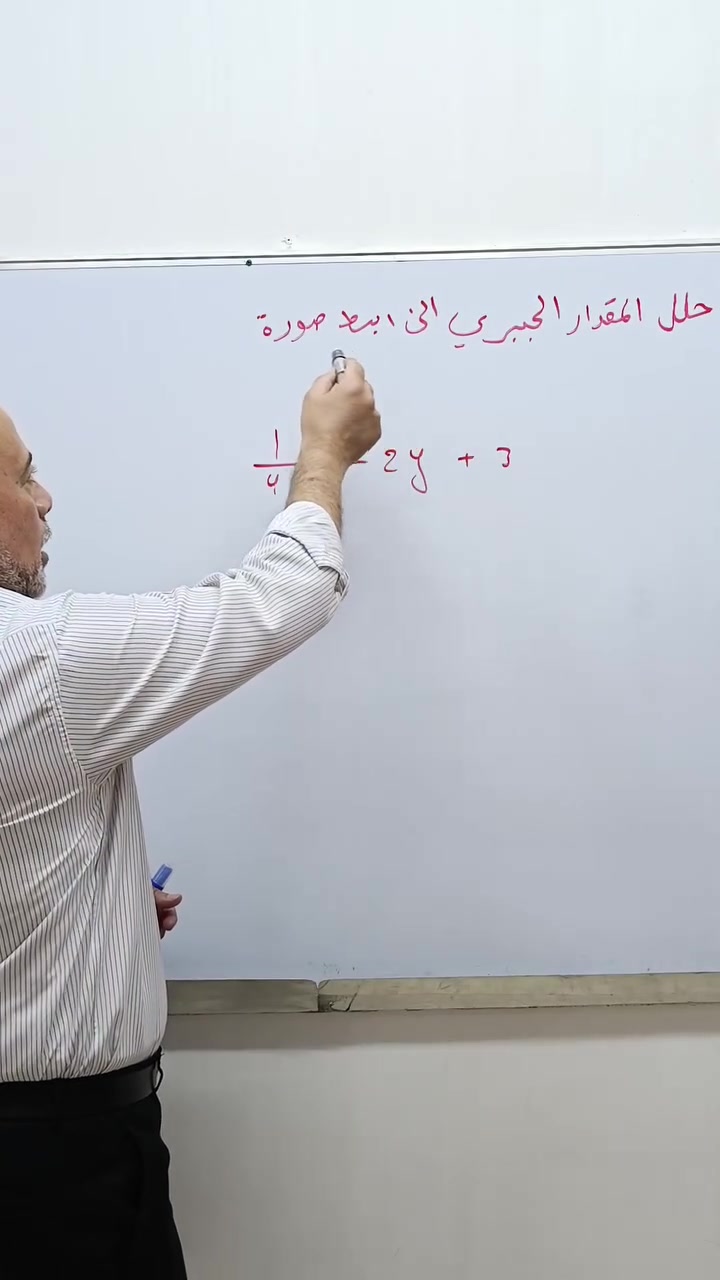 حلل المقدار الجبري الى ابسط صورة
1/4 - 2y + 3